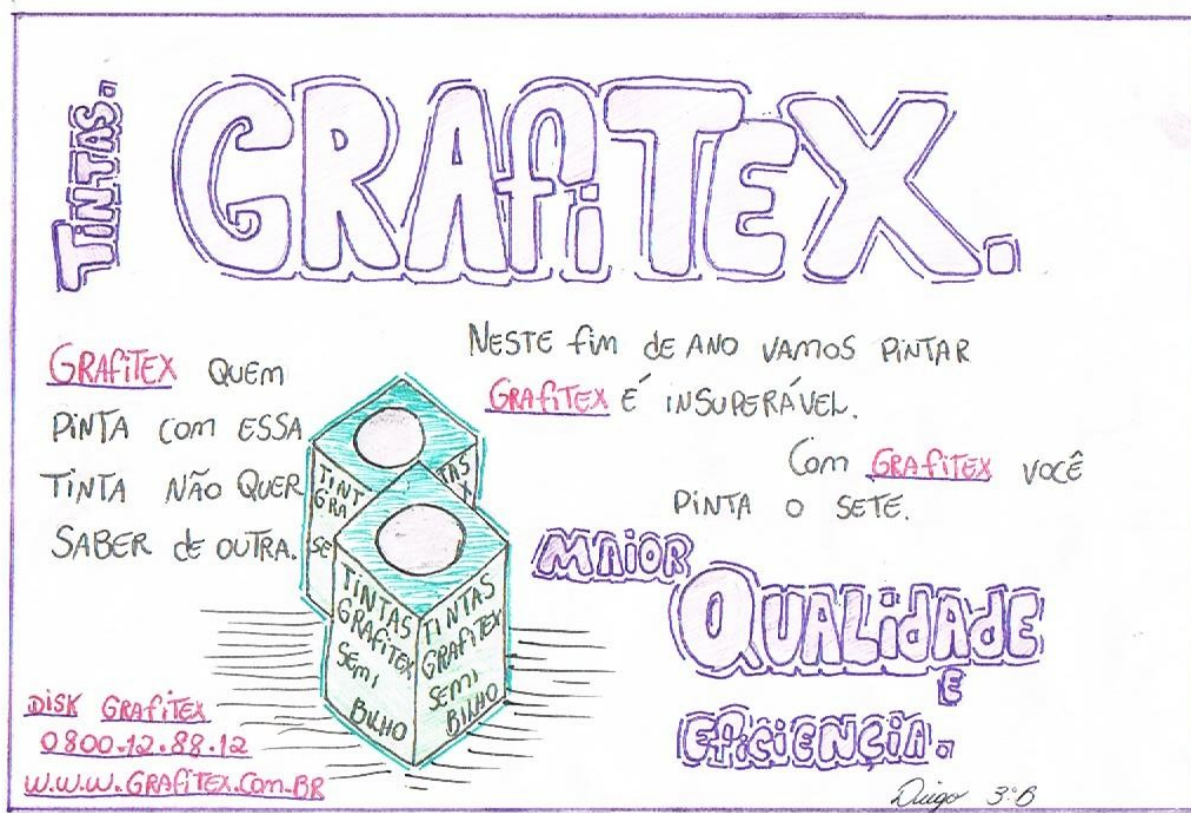 TINTAS.
GRAFiTEX.
GRAFiTEX QUEM
PINTA COM ESSA
TINTA NÃO QUER
SABER de OUTRA.
NESTE fim de ANO VAMOS PINTAR
GRAFiTEX É iNSUPERÁVEL.
Com GRAFiTEX VOCÊ
PINTA O SETE.
TINT
GRA
SE
TAS
X
TINTAS
GRAFITEX
SEMI
BILHO
TINTAS
GRAFITEX
SEMI
BILHO
MAIOR
QUALIdAdE
E
EficiENÇiA.
DiSK GRAFiTEX
0800-12.88.12
W.W.W.GRAFiTEX.Com-BR
Diego 3ºB